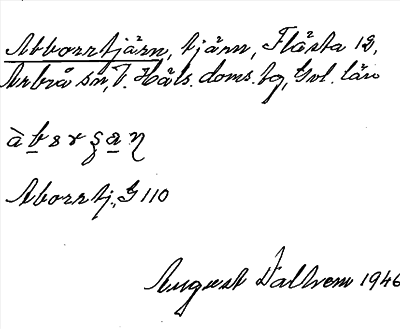 Abborrtjärn, tjärn, Flästa 12,
Arbrå sn, V. Häls. doms. tg, Gvl. län
Aborrtj., G 110
August Dalhem 1946